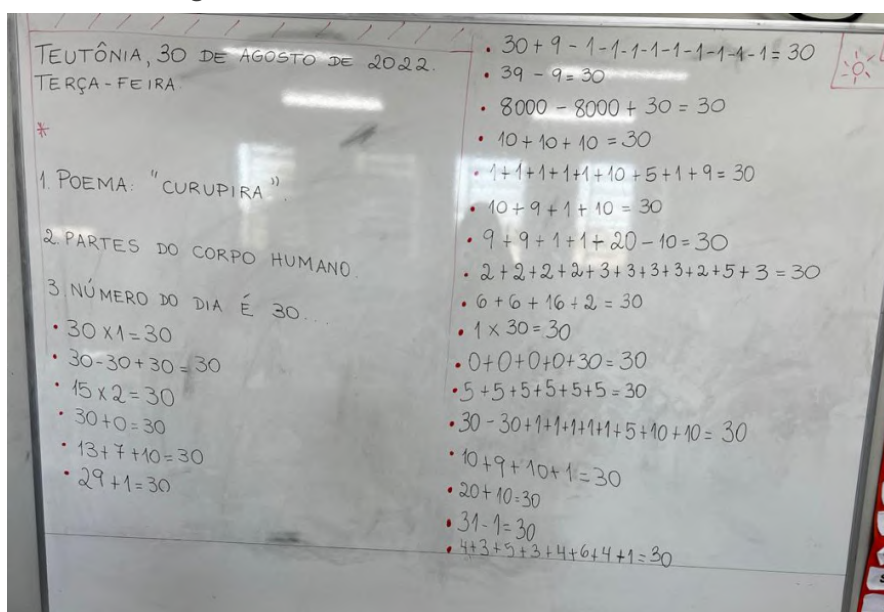 TEUTÔNIA, 30 DE AGOSTO DE 2022.
TERÇA-FEIRA
*
1. POEMA: "CURUPIRA".
2. PARTES DO CORPO HUMANO.
3 NÚMERO DO DIA É 30...
• 30 X 1 = 30
• 30 - 30 + 30 = 30
• 15 X 2 = 30
• 30 + 0 = 30
• 13 + 7 + 10 = 30
• 29 + 1 = 30
• 30 + 9 - 1-1-1-1-1-1-1-1-1 = 30
• 39 - 9 = 30
• 8000 - 8000 + 30 = 30
• 10 + 10 + 10 = 30
• 1+1+1+1+1+10+5+1+9 = 30
• 10 + 9 + 1 + 10 = 30
• 9 + 9 + 1 + 1 + 20 - 10 = 30
• 2+2+2+2+3+3+3+3+2+5+3 = 30
• 6 + 6 + 16 + 2 = 30
• 1 X 30 = 30
• 0+0+0+0+30 = 30
• 5+5+5+5+5+5 = 30
• 30 - 30+1+1+1+1+1+5+10+10 = 30
• 10+9+10+1 = 30
• 20 + 10 = 30
• 31 - 1 = 30
• 4+3+5+3+4+6+4+1 = 30